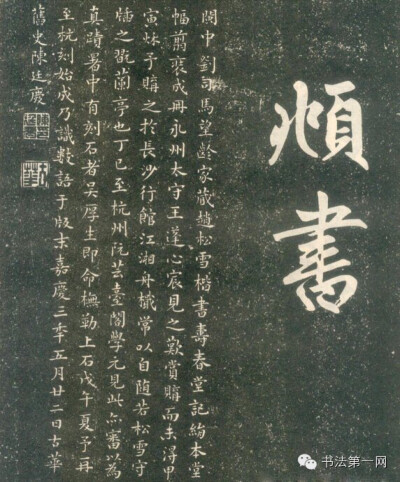 頫書
關中劉司馬望齡家藏趙松雪楷書壽春堂記絹本堂
幅翦裝成冊永州太守王蓬心宸見之歎賞購而未得甲
寅秋予購之於長沙行館江湘舟檝常以自随若松雪守
牐之翫蘭亭也丁巳至杭州阮芸臺閣學元見此亦審以為
真蹟署中有刻石者吳厚生即命橅勒上石戊午夏予再
至杭刻始成乃識數語于版末嘉慶三季五月廿二日古華
舊史陳廷慶
书法第一网